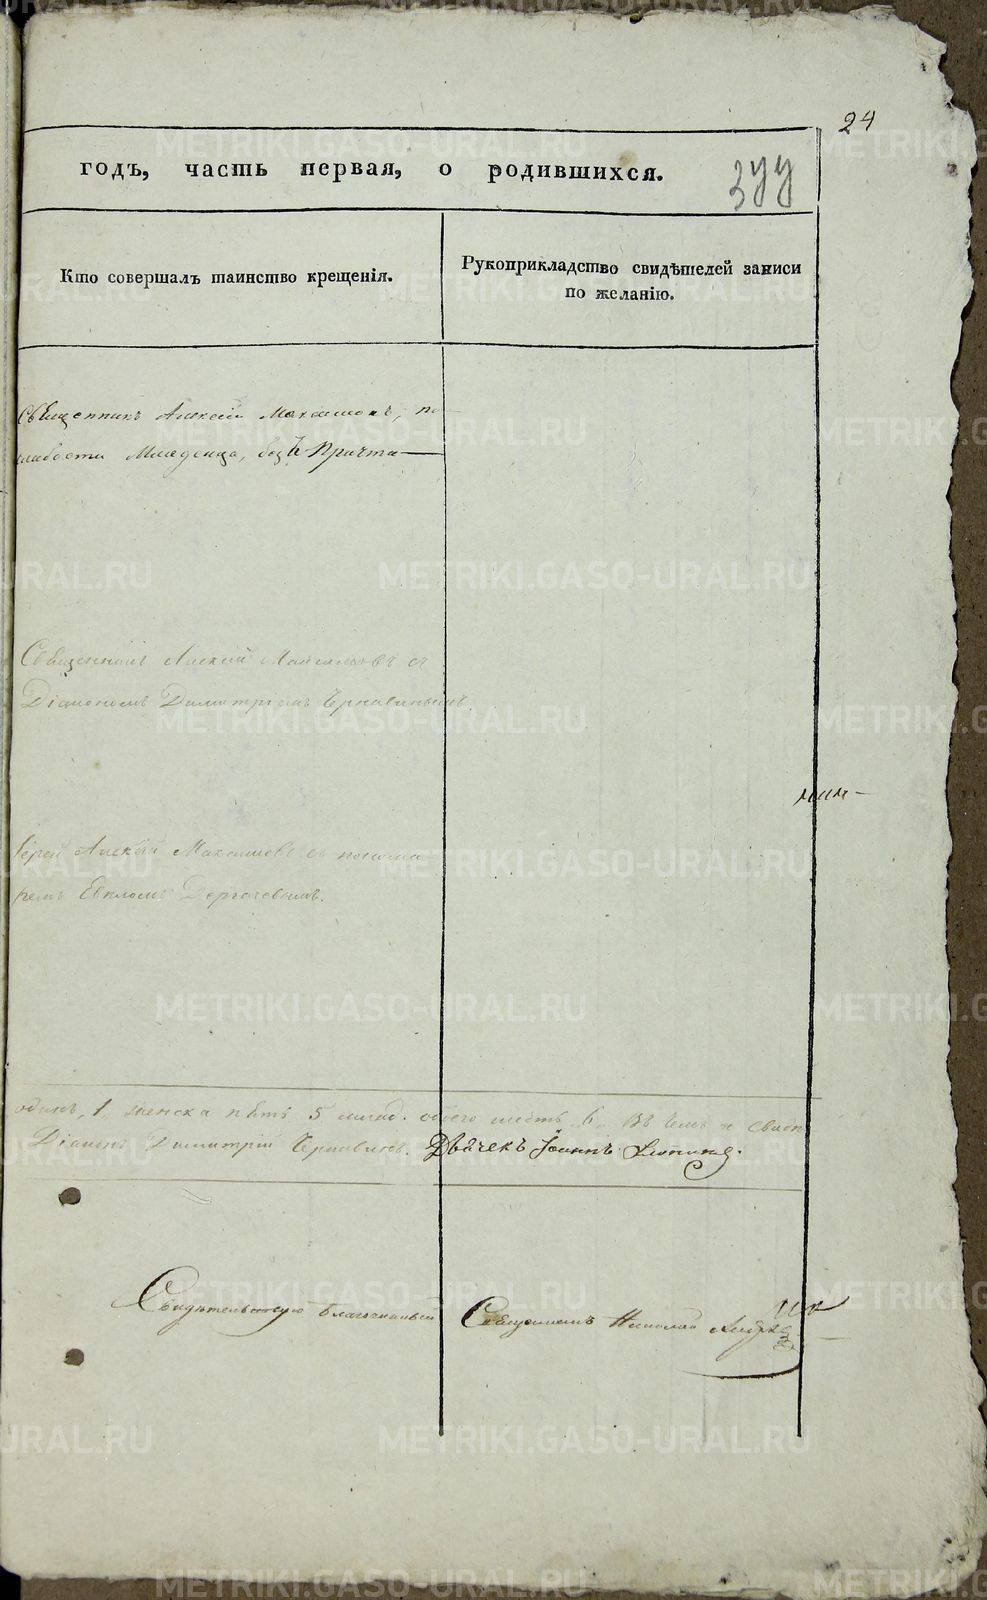 24
годъ, часть первая, о родившихся.
Кто совершалъ таинство крещенія.
Рукоприкладство свидѣтелей записи
по желанію.
Священникъ Алексій Максимовъ, по
слабости Младенца, безъ Причта
Священникъ Алексій Максимовъ съ
Діакономъ Димитріемъ Чернавинымъ.
Іерей Алексій Максимовъ съ понома
ремъ Дергачевымъ.
одинъ, 1, женска пять 5 млад. обоего шесть 6. Въ чемъ и свид
Діаконъ Димитрій Чернавинъ. Дьячекъ Іоаннъ
Свидѣтельствую благочинный Священникъ Николай
METRIKI.GASO-URAL.RU